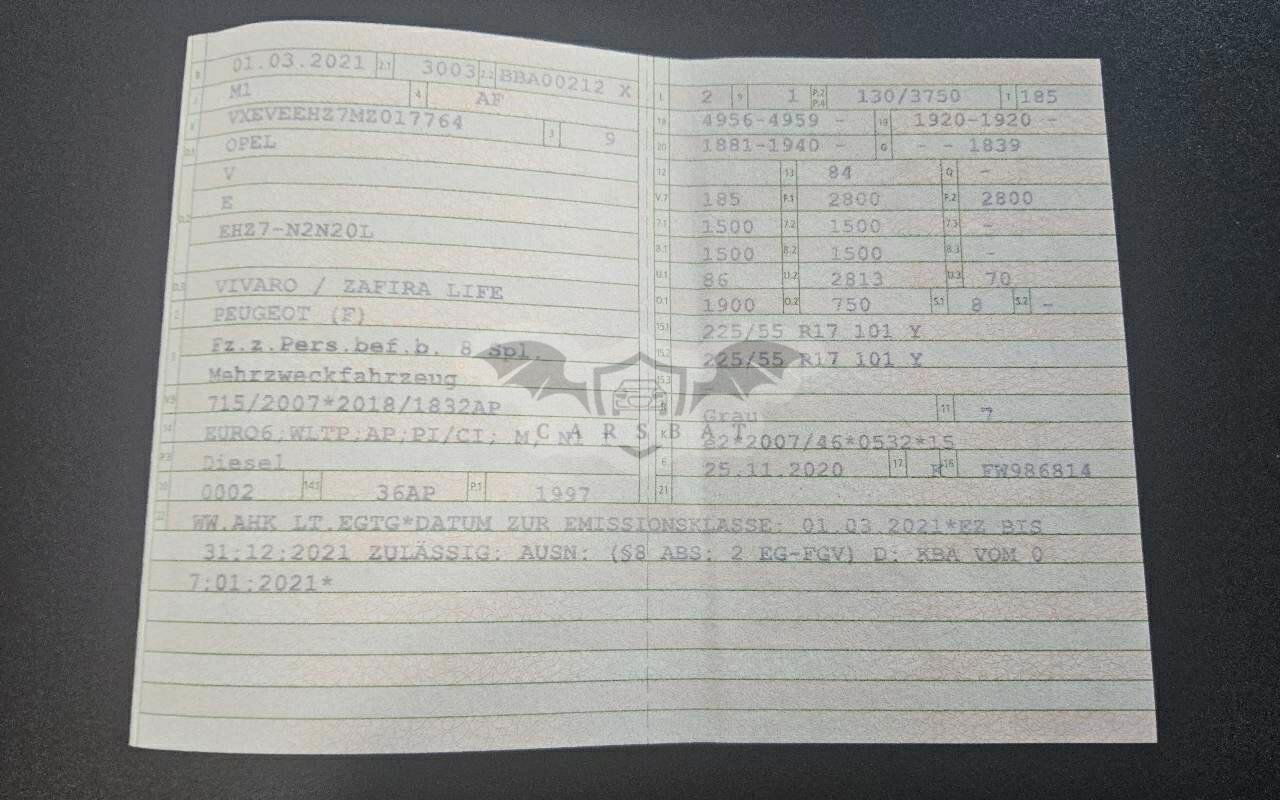 B 01.03.2021 2.1 3003 2.2 BBA00212 X
J M1 4 AF
E VXEVEEHZ7MZ017764 3 9
D.1 OPEL
V
D.2 E
EHZ7-N2N20L
D.3 VIVARO / ZAFIRA LIFE
2 PEUGEOT (F)
5 Fz.z.Pers.bef.b. 8 Spl.
Mehrzweckfahrzeug
V.9 715/2007*2018/1832AP
14 EURO6;WLTP;AP;PI/CI; M, N1
P.3 Diesel
10 0002 14.1 36AP P.1 1997
22 WW.AHK LT.EGTG*DATUM ZUR EMISSIONSKLASSE: 01.03.2021*EZ BIS
31:12:2021 ZULÄSSIG: AUSN: (§8 ABS: 2 EG-FGV) D: KBA VOM 0
7:01:2021*
L 2 9 1 P.2 P.4 130/3750 T 185
18 4956-4959 - 19 1920-1920 -
20 1881-1940 - G - - 1839
12 13 84 Q -
V.7 185 F.1 2800 F.2 2800
7.1 1500 7.2 1500 7.3 -
8.1 1500 8.2 1500 8.3 -
U.1 86 U.2 2813 U.3 70
O.1 1900 O.2 750 S.1 8 S.2 -
15.1 225/55 R17 101 Y
15.2 225/55 R17 101 Y
15.3
R Grau 11 7
K e2*2007/46*0532*15
6 25.11.2020 17 K 16 FW986814
21
CARSBAT